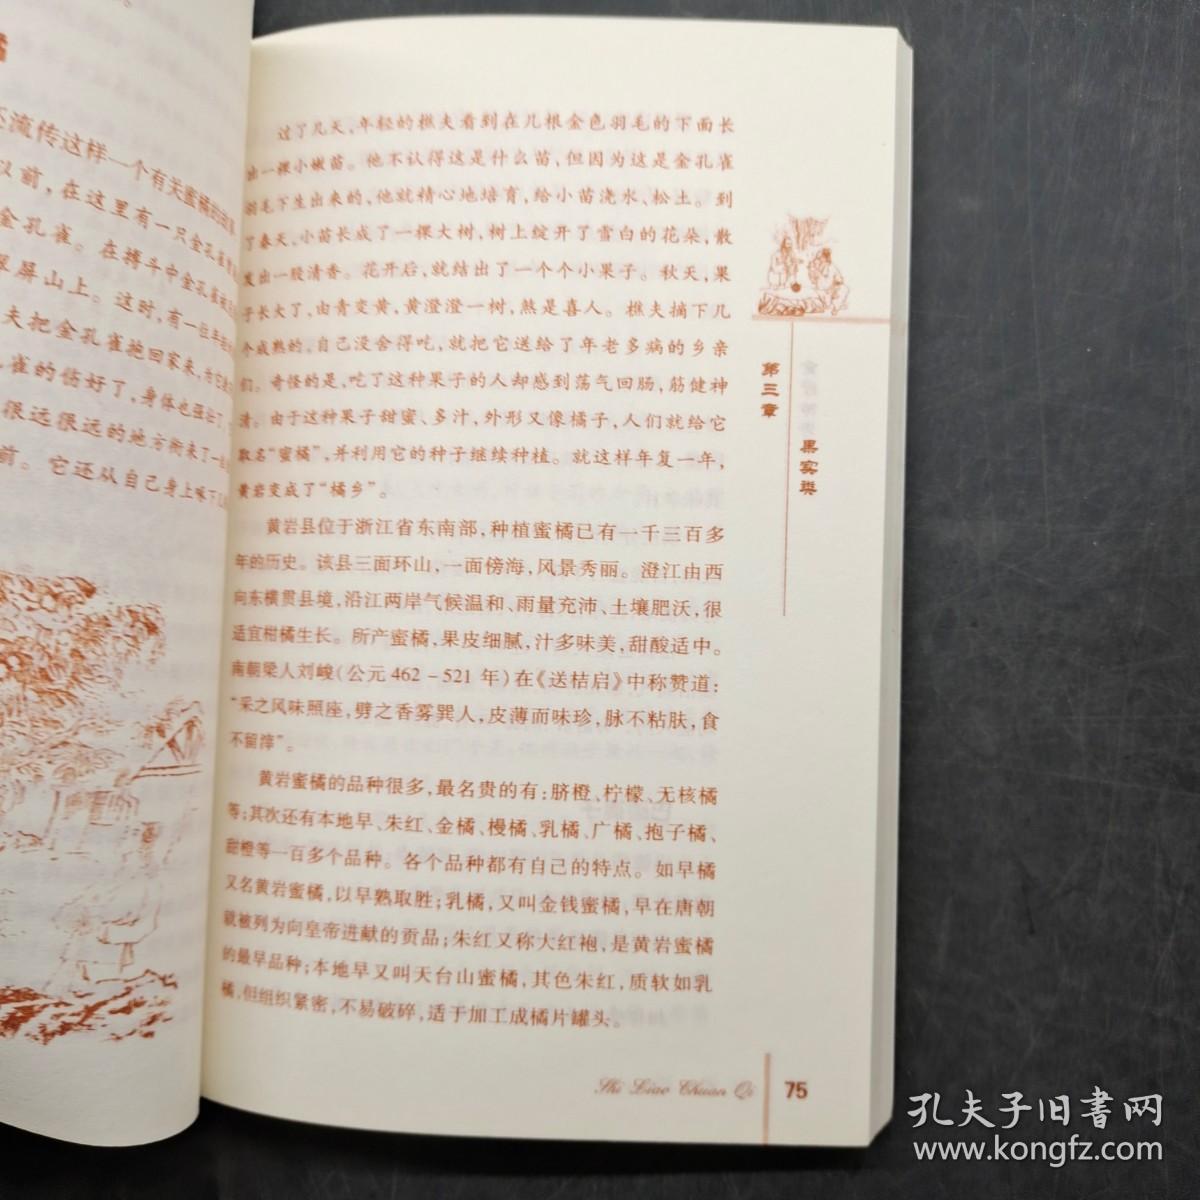 橘
还流传这样一个有关蜜橘的
以前，在这里有一只金孔雀
金孔雀。在搏斗中金孔雀
翠屏山上。这时，有一位年
夫把金孔雀抱回家来，为它
孔雀的伤好了，身体也强壮了，
很远很远的地方衔来了一
前。它还从自己身上啄下几
过了几天，年轻的樵夫看到在几根金色羽毛的下面长
出一棵小嫩苗。他不认得这是什么苗，但因为这是金孔雀
羽毛下生出来的，他就精心地培育，给小苗浇水、松土。到
了春天，小苗长成了一棵大树，树上绽开了雪白的花朵，散
发出一股清香。花开后，就结出了一个个小果子。秋天，果
子长大了，由青变黄，黄澄澄一树，煞是喜人。樵夫摘下几
个成熟的，自己没舍得吃，就把它送给了年老多病的乡亲
们。奇怪的是，吃了这种果子的人却感到荡气回肠，筋健神
清。由于这种果子甜蜜、多汁，外形又像橘子，人们就给它
取名“蜜橘”，并利用它的种子继续种植。就这样年复一年，
黄岩变成了“橘乡”。
黄岩县位于浙江省东南部，种植蜜橘已有一千三百多
年的历史。该县三面环山，一面傍海，风景秀丽。澄江由西
向东横贯县境，沿江两岸气候温和、雨量充沛、土壤肥沃，很
适宜柑橘生长。所产蜜橘，果皮细腻，汁多味美，甜酸适中。
南朝梁人刘峻（公元 462－521 年）在《送桔启》中称赞道：
“采之风味照座，劈之香雾巽人，皮薄而味珍，脉不粘肤，食
不留滓”。
黄岩蜜橘的品种很多，最名贵的有：脐橙、柠檬、无核橘
等；其次还有本地早、朱红、金橘、槾橘、乳橘、广橘、抱子橘、
甜橙等一百多个品种。各个品种都有自己的特点。如早橘
又名黄岩蜜橘，以早熟取胜；乳橘，又叫金钱蜜橘，早在唐朝
就被列为向皇帝进献的贡品；朱红又称大红袍，是黄岩蜜橘
的最早品种；本地早又叫天台山蜜橘，其色朱红，质软如乳
橘，但组织紧密，不易破碎，适于加工成橘片罐头。
第三章
果实类
Shi Liao Chuan Qi
75
孔夫子旧书网
www.kongfz.com